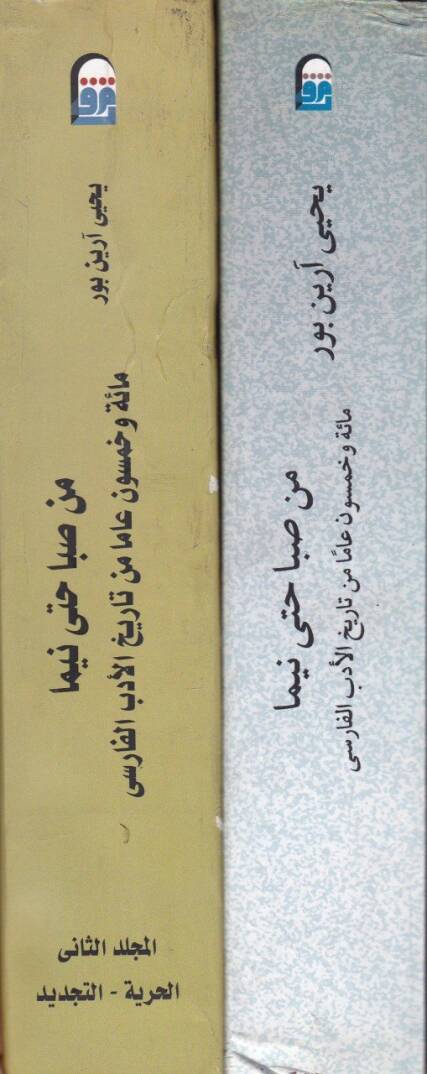 يحيى آرين بور
من صبا حتى نيما
مائة وخمسون عاما من تاريخ الأدب الفارسى
المجلد الثانى
الحرية - التجديد
يحيى آرين بور
من صبا حتى نيما
مائة وخمسون عامًا من تاريخ الأدب الفارسى